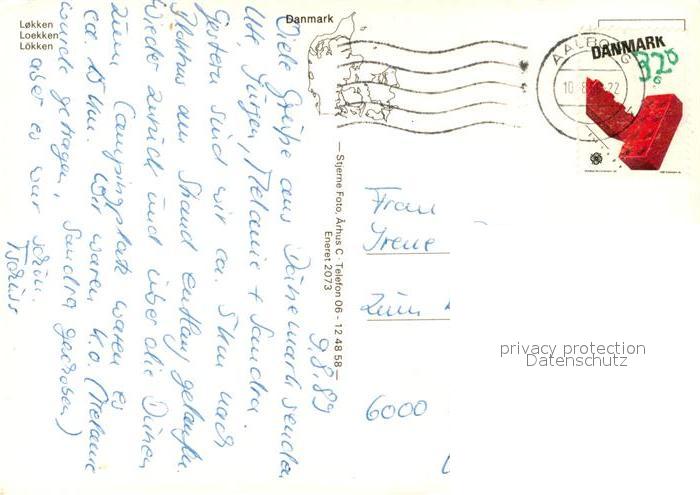 Løkken
Loekken
Lökken
Danmark
9.8.89
Viele Grüße aus Dänemark senden
Ute, Jürgen, Melanie + Sandra.
Gestern sind wir ca. 5 km nach
am Strand entlang gelaufen
wieder zurück und über die Dünen
zum Campingplatz waren es
ca. 15 km. Wir waren k.o. (Melanie
wurde getragen, Sandra geschoben)
aber es war schön.
Tschüss
— Stjerne Foto, Århus C - Telefon 06 - 12 48 58 —
Eneret 2073
AALBORG
DANMARK
320
Frau
Irene
Zum
6000
privacy protection
Datenschutz